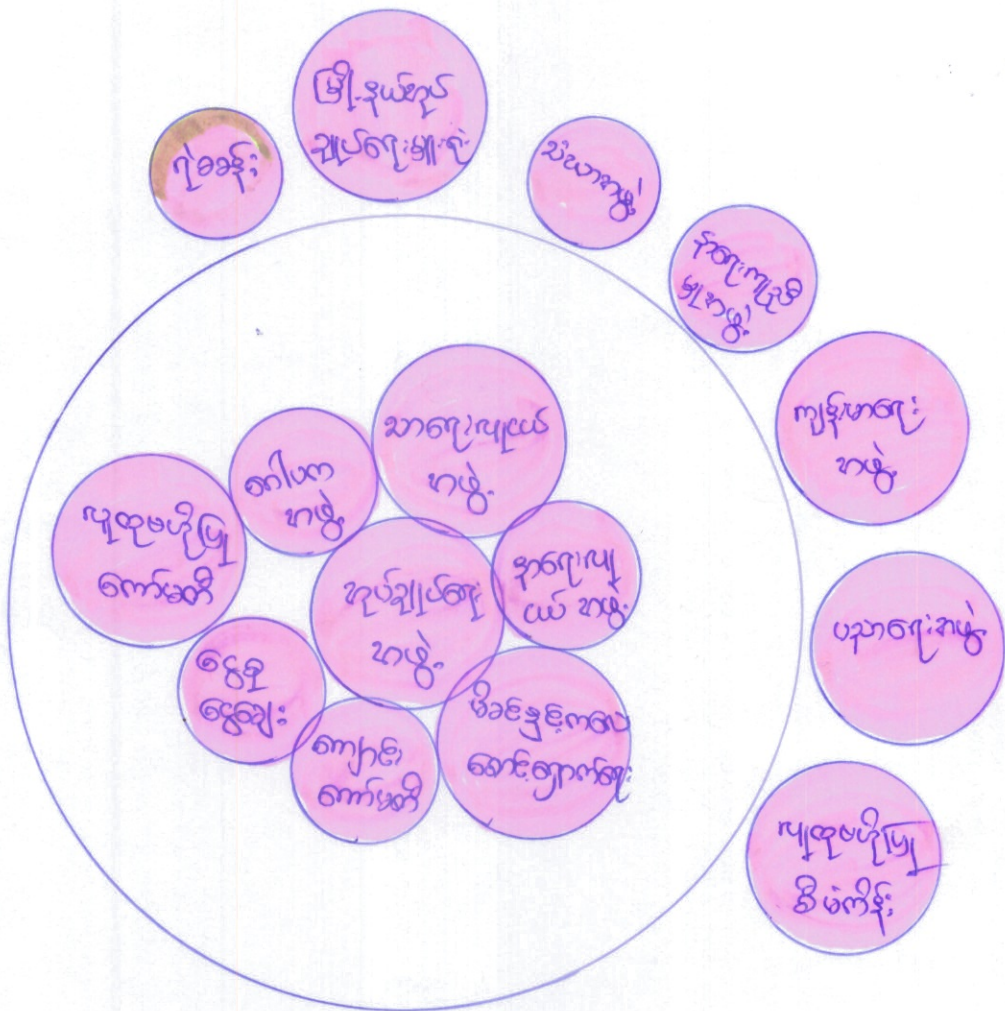 ရဲစခန်း
မြို့နယ်အုပ်
ချုပ်ရေးမှူးရုံး
သံဃာအဖွဲ့
နာရေးကူညီ
မှုအဖွဲ့
ကျန်းမာရေး
အဖွဲ့
ပညာရေးအဖွဲ့
လူထုဗဟိုပြု
စီမံကိန်း
သာရေးလူငယ်
အဖွဲ့
ဂေါပက
အဖွဲ့
လူထုဗဟိုပြု
ကော်မတီ
အုပ်ချုပ်ရေး
အဖွဲ့
နာရေးလူ
ငယ် အဖွဲ့
ငွေစု
ငွေချေး
ကျောင်း
ကော်မတီ
မိခင်နှင့်ကလေး
စောင့်ရှောက်ရေး